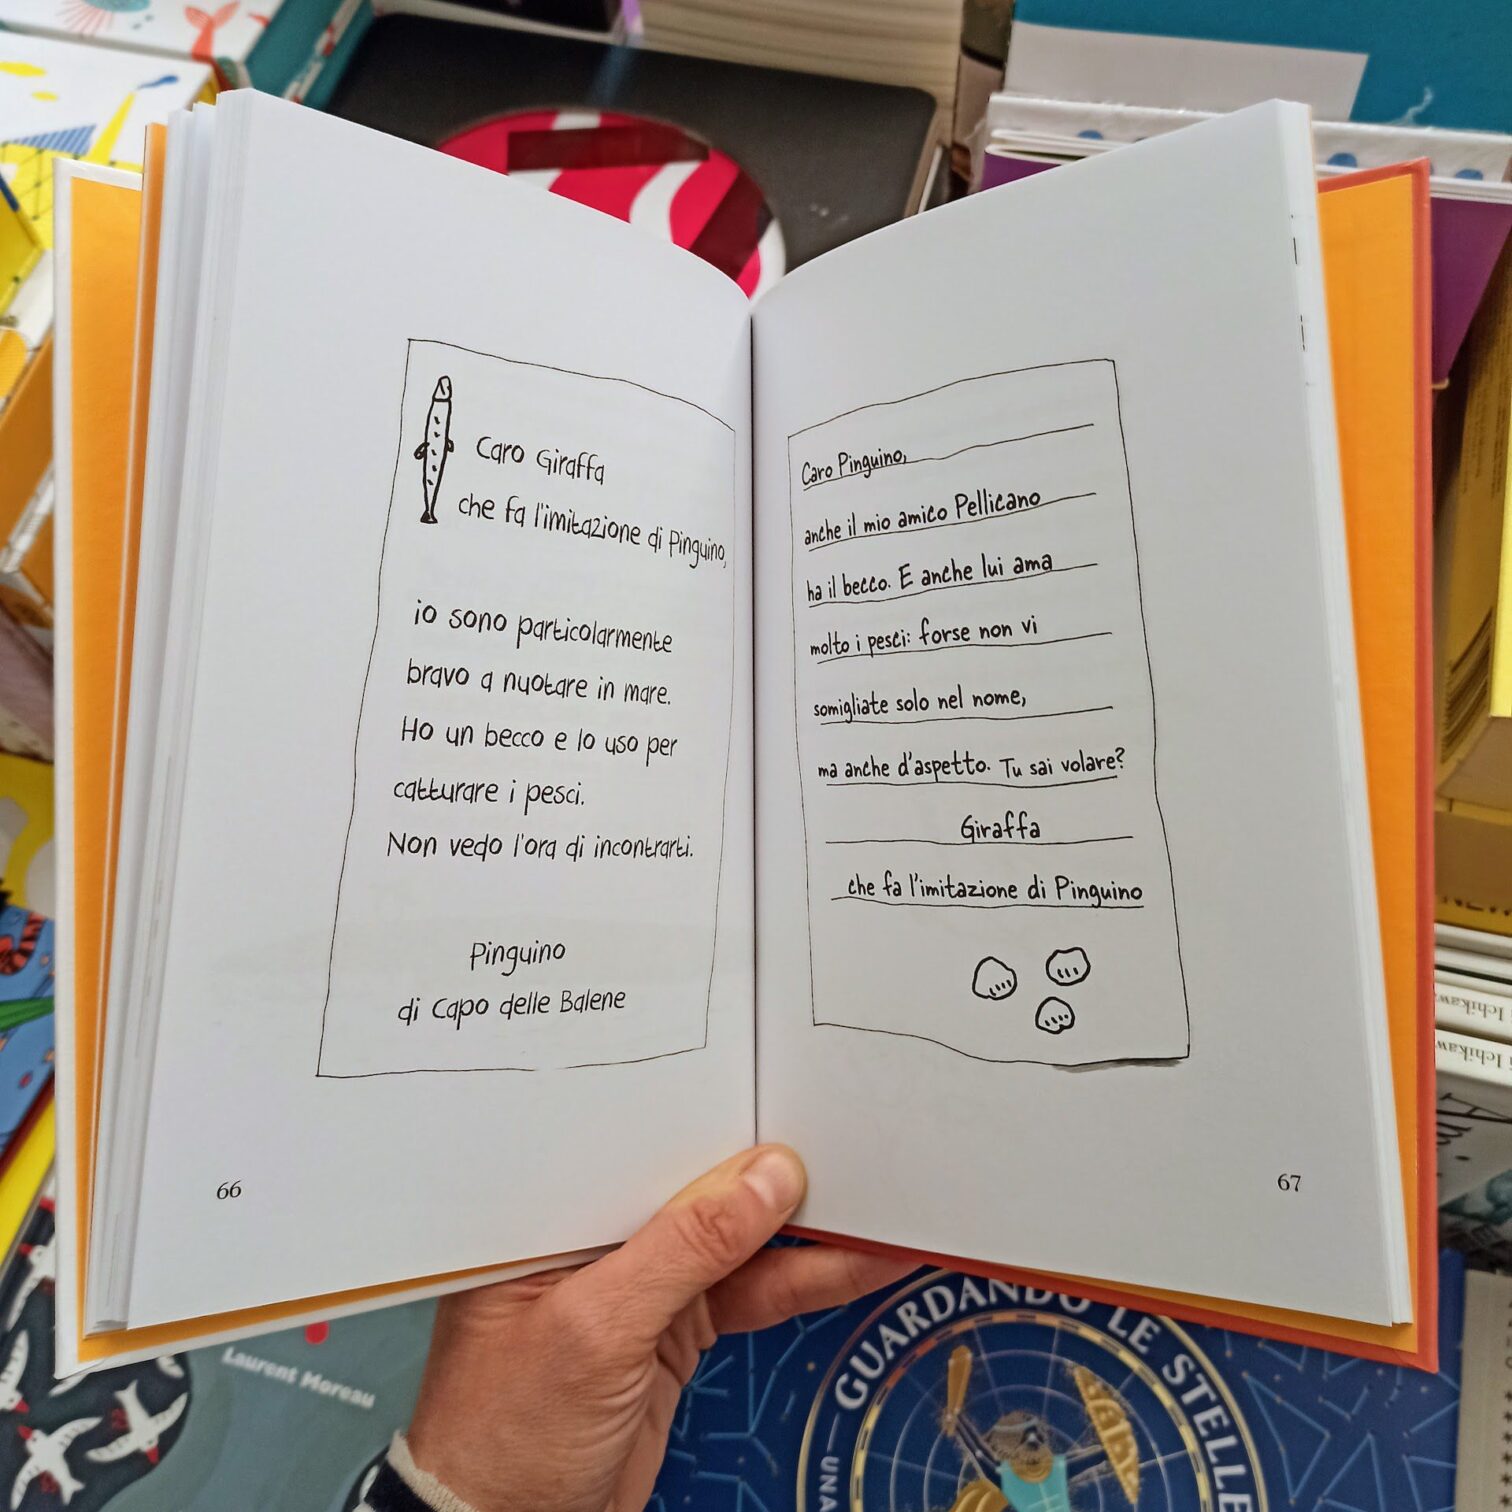 Caro Giraffa
che fa l'imitazione di Pinguino,
io sono particolarmente
bravo a nuotare in mare.
Ho un becco e lo uso per
catturare i pesci.
Non vedo l'ora di incontrarti.
Pinguino
di Capo delle Balene
66
Caro Pinguino,
anche il mio amico Pellicano
ha il becco. E anche lui ama
molto i pesci: forse non vi
somigliate solo nel nome,
ma anche d'aspetto. Tu sai volare?
Giraffa
che fa l'imitazione di Pinguino
67
Laurent Moreau
GUARDANDO LE STELLE
Ichikawa
Ichikawa